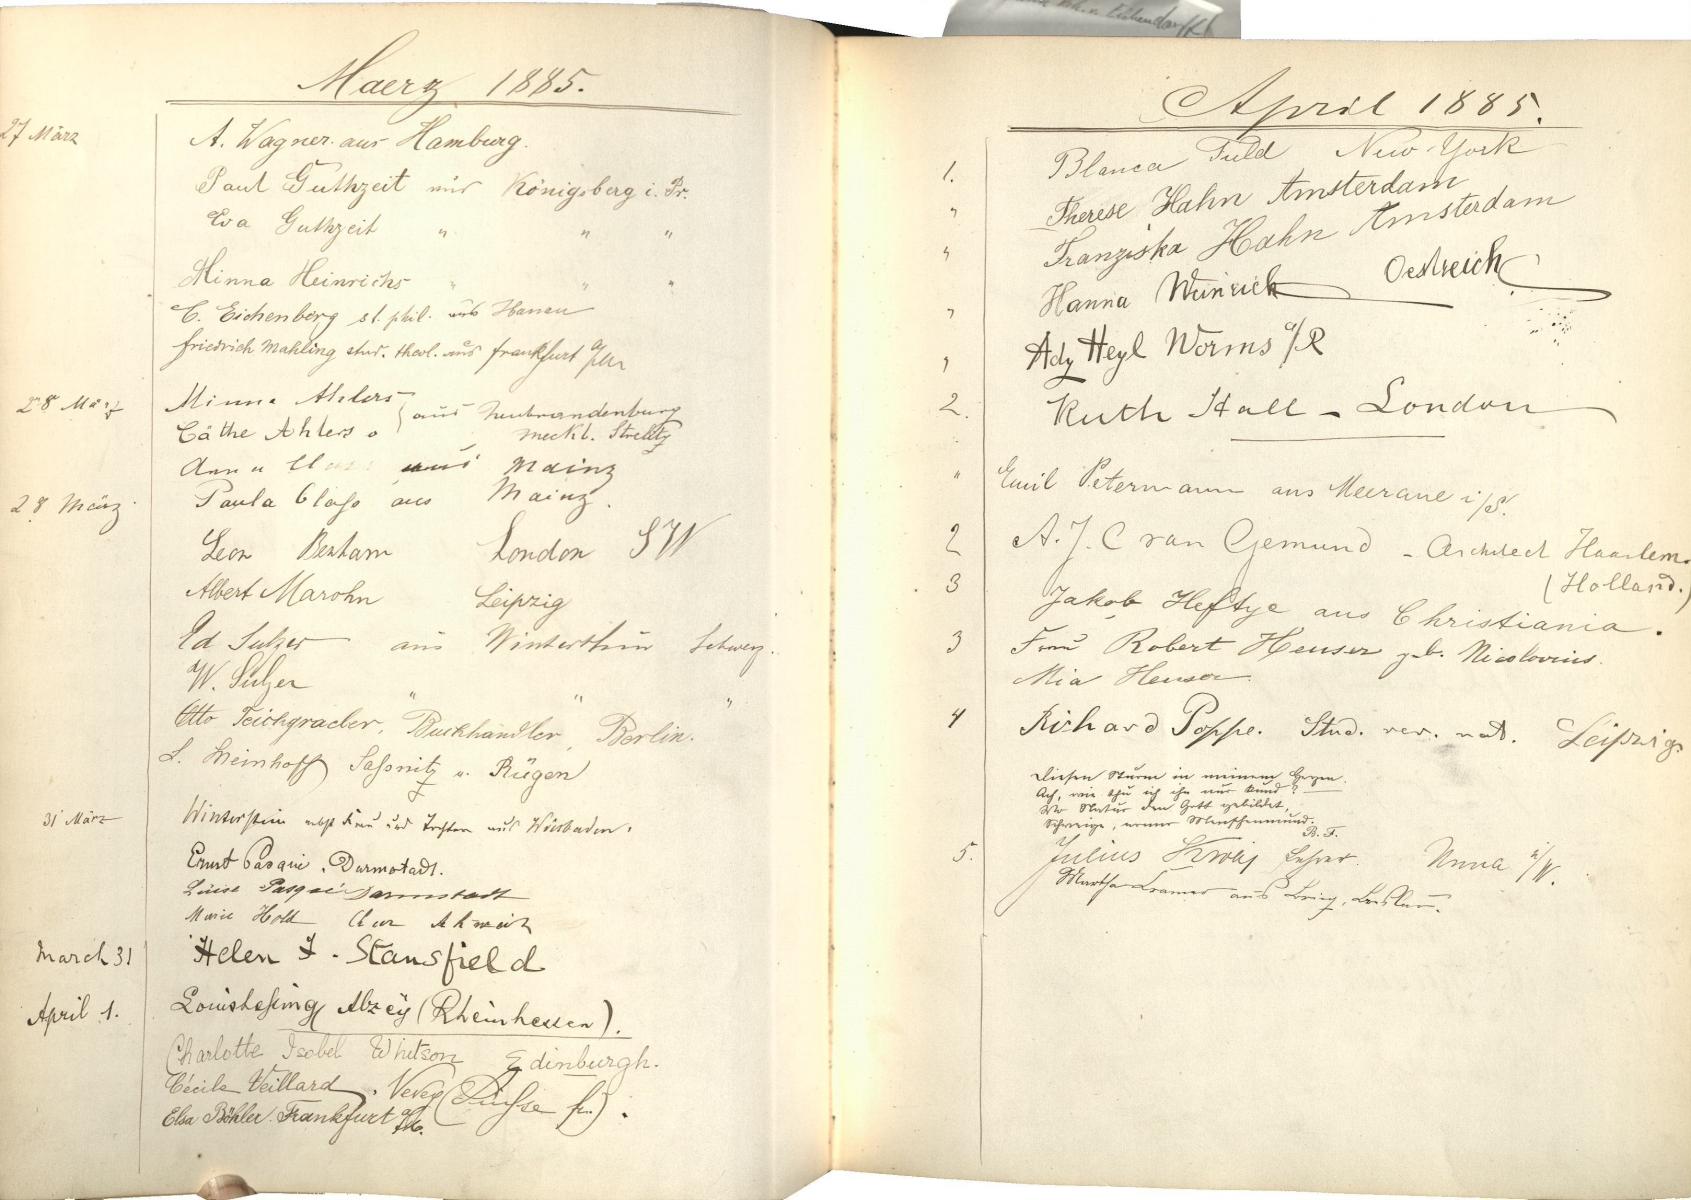 Maerz 1885.
27 März
A. Wagner aus Hamburg.
Paul Guthzeit aus Königsberg i. Pr.
Eva Guthzeit " " "
Minna Heinrichs " " "
C. Eichenberg st. phil. aus Hanau
Friedrich Mahling stud. theol. aus Frankfurt a/M
28 März
Minna Ahlers
Cäthe Ahlers aus Neubrandenburg
Meckl. Strelitz
Anna aus Mainz
28 März
Paula Clahs aus Mainz.
Leon London SW
Albert Marohn Leipzig
Ed Sulzer aus Winterthur Schweiz.
W. Sulzer " " "
Otto Teichgraeber, Buchhändler, Berlin.
L. Meinhoff Saßnitz a. Rügen
31 März
Winterstein nebst Frau und Tochter aus Wiesbaden.
Ernst Pasqué. Darmstadt.
Luise Pasqué Darmstadt
Marie Hold Chur
March 31
Helen F. Stansfield
April 1.
Alzey (Rheinhessen).
Charlotte Isobel Whitson Edinburgh.
Cécile Veillard, Vevey (Suisse fr.).
Elsa Böhler. Frankfurt a/M.
April 1885.
1. Blanca Fuld New-York
" Therese Hahn Amsterdam
" Franziska Hahn Amsterdam
" Hanna Weinrich Oestreich
" Ady Heyl Worms a/R
2. Ruth Hall - London
" Emil Petermann aus Meerane i/S.
2 A. J. C van Gemund - Architect Haarlem.
(Holland.)
3 Jakob Heftye aus Christiania.
3 Frau Robert Heuser geb. Nicolovius.
Mia Heuser.
4 Richard Poppe. Stud. rer. nat. Leipzig.
Diesen Sturm in meinem Herzen.
Ach, wie thu ich ihn nur kund?
Wo Natur den Gott gebildet,
Schweige, armer Menschenmund.
B. F.
5. Julius Lehrer. Unna i/W.
Martha Kramer aus Brieg, Breslau.